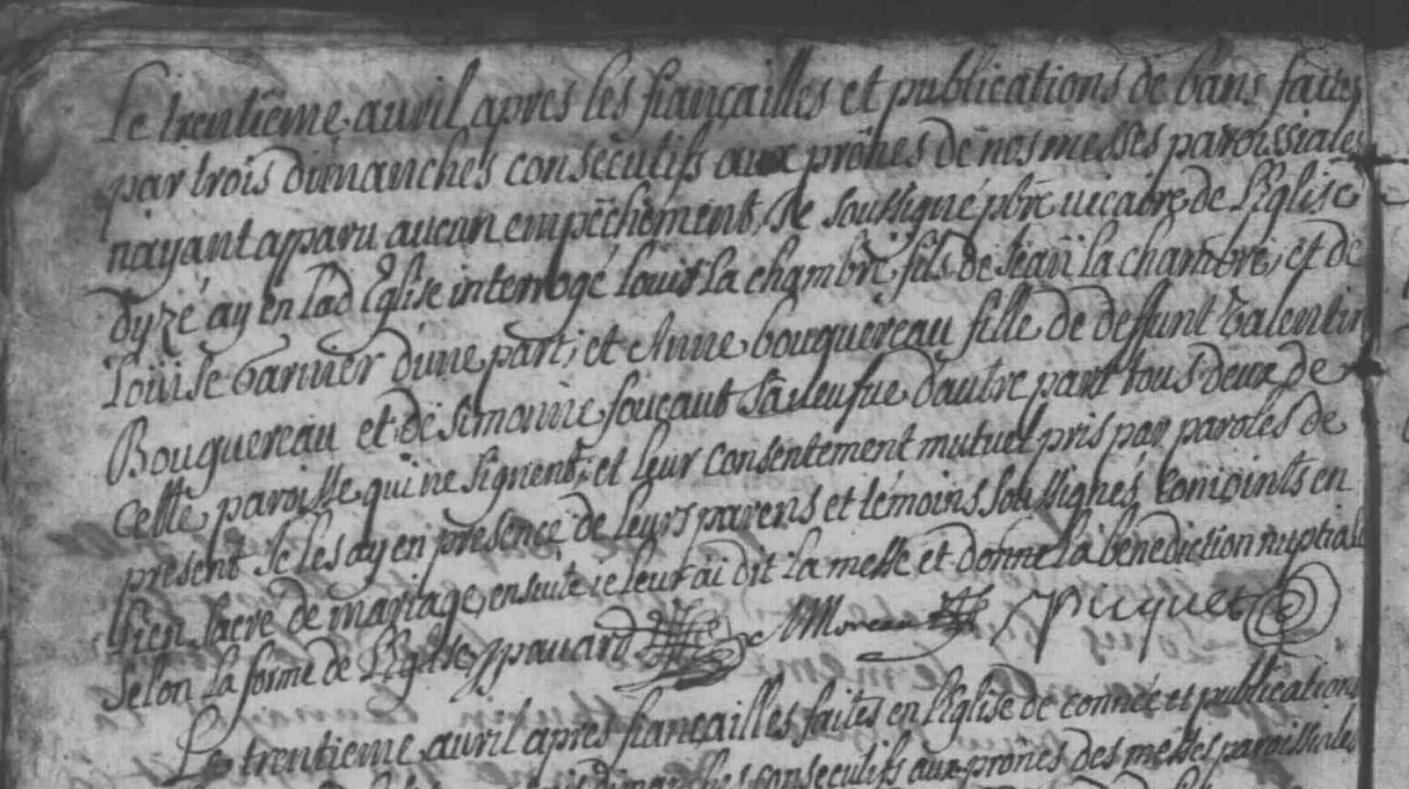 Le trentiême auvril apres les fiançailles et publications de bans faites
par trois dimanches consécutifs aux prônes de nos messes paroissiales
nayant apparu aucun empêchement, Je soussigné pbrē vicaire de L'Eglise
dyzé ay en lad Eglise interrogé Louis La chambre, fils de Jean La chambre, et de
Louise Garnier d'une part; et Anne bouquereau fille de deffunt Valentin
Bouquereau et de Simonne fouçaut Sa veufve d'autre part tous deux de
Cette paroisse qui ne signent; et leur consentement mutuel pris par paroles de
present Je les ay en presence de leurs parens et témoins soussignés, conioints en
Lien sacré de mariage, ensuite ie leur ai dit La messe et donné La bénédiction nuptiale
Selon La forme de L'Eglise, pavard Moreau Piquet
Le trentieme auvril apres fiançailles faites en L'Eglise de connée et publications
dimanches consecutifs aux prônes des messes paroissiales